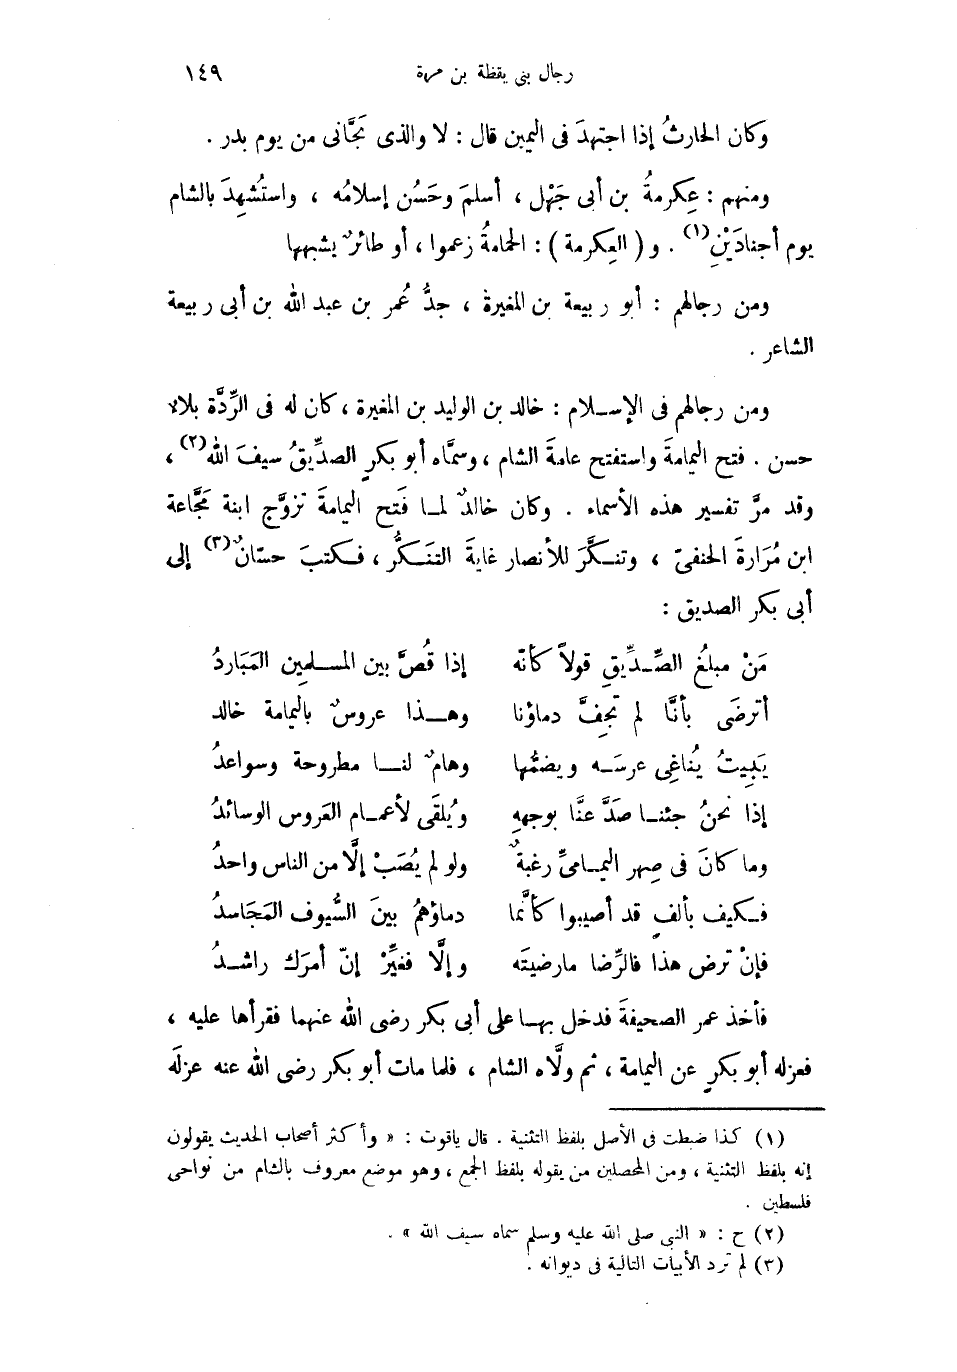 رجال بنى يقظة بن مرة ١٤٩
وكان الحارثُ إذا اجتهدَ فى اليمين قال : لا والذى نجَّانى من يوم بدر .
ومنهم : عِكرمةُ بن أبى جَهْل ، أسلمَ وحَسُن إسلامُه ، واستُشهِدَ بالشام
يوم أجنادَيْنِ(١) . و ( العِكرمة ) : الحمامةُ زعموا ، أو طائرٌ يشبهها
ومن رجالهم : أبو ربيعة بن المغيرة ، جدُّ عُمر بن عبد الله بن أبى ربيعة
الشاعر .
ومن رجالهم فى الإسلام : خالد بن الوليد بن المغيرة ، كان له فى الرِّدَّة بلاء
حسن . فتح اليمامةَ واستفتح عامةَ الشام ، وسمَّاه أبو بكرٍ الصدِّيقُ سيفَ الله(٢) ،
وقد مرَّ تفسير هذه الأسماء . وكان خالدٌ لما فَتح اليمامةَ تزوَّج ابنة مَجَّاعة
ابن مُرَارةَ الحنفىّ ، وتنكَّرَ للأنصار غايةَ التنَكُّر ، فكتبَ حسّانٌ(٣) إلى
أبى بكر الصديق :
مَنْ مبلغُ الصِّدِّيقِ قولاً كأنّه إذا قُصَّ بين المسلمِين المَبَاردُ
أترضَى بأنَّا لم تجِفَّ دماؤنا وهذا عروسٌ باليمامة خالد
يَبِيتُ يُناغِى عرسَه ويضمُّها وهامٌ لنا مطروحة وسواعدُ
إذا نحنُ جئنا صَدَّ عنَّا بوجههِ ويُلقَى لأعمام العَروس الوسائدُ
وما كانَ فى صِهر اليمامىِّ رغبةٌ ولو لم يُصَبْ إلَّا من الناس واحدُ
فكيف بألفٍ قد أصيبوا كأنَّما دماؤهمُ بينَ السُّيوف المَجَاسدُ
فإنْ ترض هذا فالرِّضا مارضيتَه وإلَّا فغيِّرْ إنّ أمرَك راشدُ
فأخذ عمر الصحيفةَ فدخل بها على أبى بكر رضى الله عنهما فقرأها عليه ،
فعزله أبو بكرٍ عن اليمامة ، ثم ولَّاه الشام ، فلما مات أبو بكر رضى الله عنه عزلَه
(١) كذا ضبطت فى الأصل بلفظ التثنية . قال ياقوت : « وأكثر أصحاب الحديث يقولون
إنه بلفظ التثنية ، ومن المحصلين من يقوله بلفظ الجمع ، وهو موضع معروف بالشام من نواحى
فلسطين .
(٢) ح : « النبى صلى الله عليه وسلم سماه سيف الله » .
(٣) لم ترد الأبيات التالية فى ديوانه .